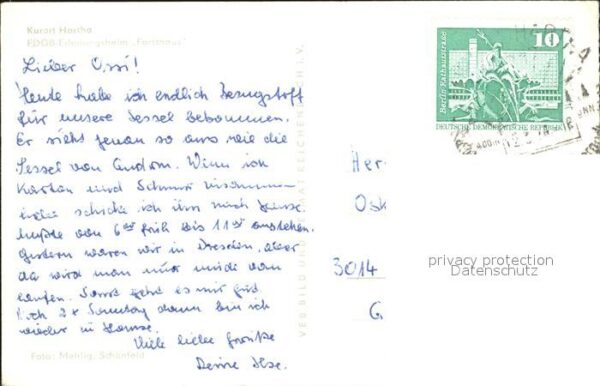 Kurort Hartha
FDGB-Erholungsheim „Forsthaus"
Lieber Ossi!
Heute habe ich endlich Bezugstoff
für unsere Sessel bekommen.
Er sieht genau so aus wie die
Sessel von Gudrun. Wenn ich
Karton und Schnur
schicke ich ihn nach Hause
mußte von 6 früh bis 11 anstehen.
Gestern waren wir in Dresden, aber
da wird man nur müde vom
laufen. Sonst geht es mir gut
Noch 2x Sonntag dann bin ich
wieder zu Hause.
Viele liebe Grüße
Deine Ilse.
Foto: Mehlig, Schönfeld
VEB BILD UND HEIMAT REICHENBACH i. V.
Berlin-Rathausstraße
10
DEUTSCHE DEMOKRATISCHE REPUBLIK
HARTHA
400m
Her
Osk
3014
G
privacy protection
Datenschutz